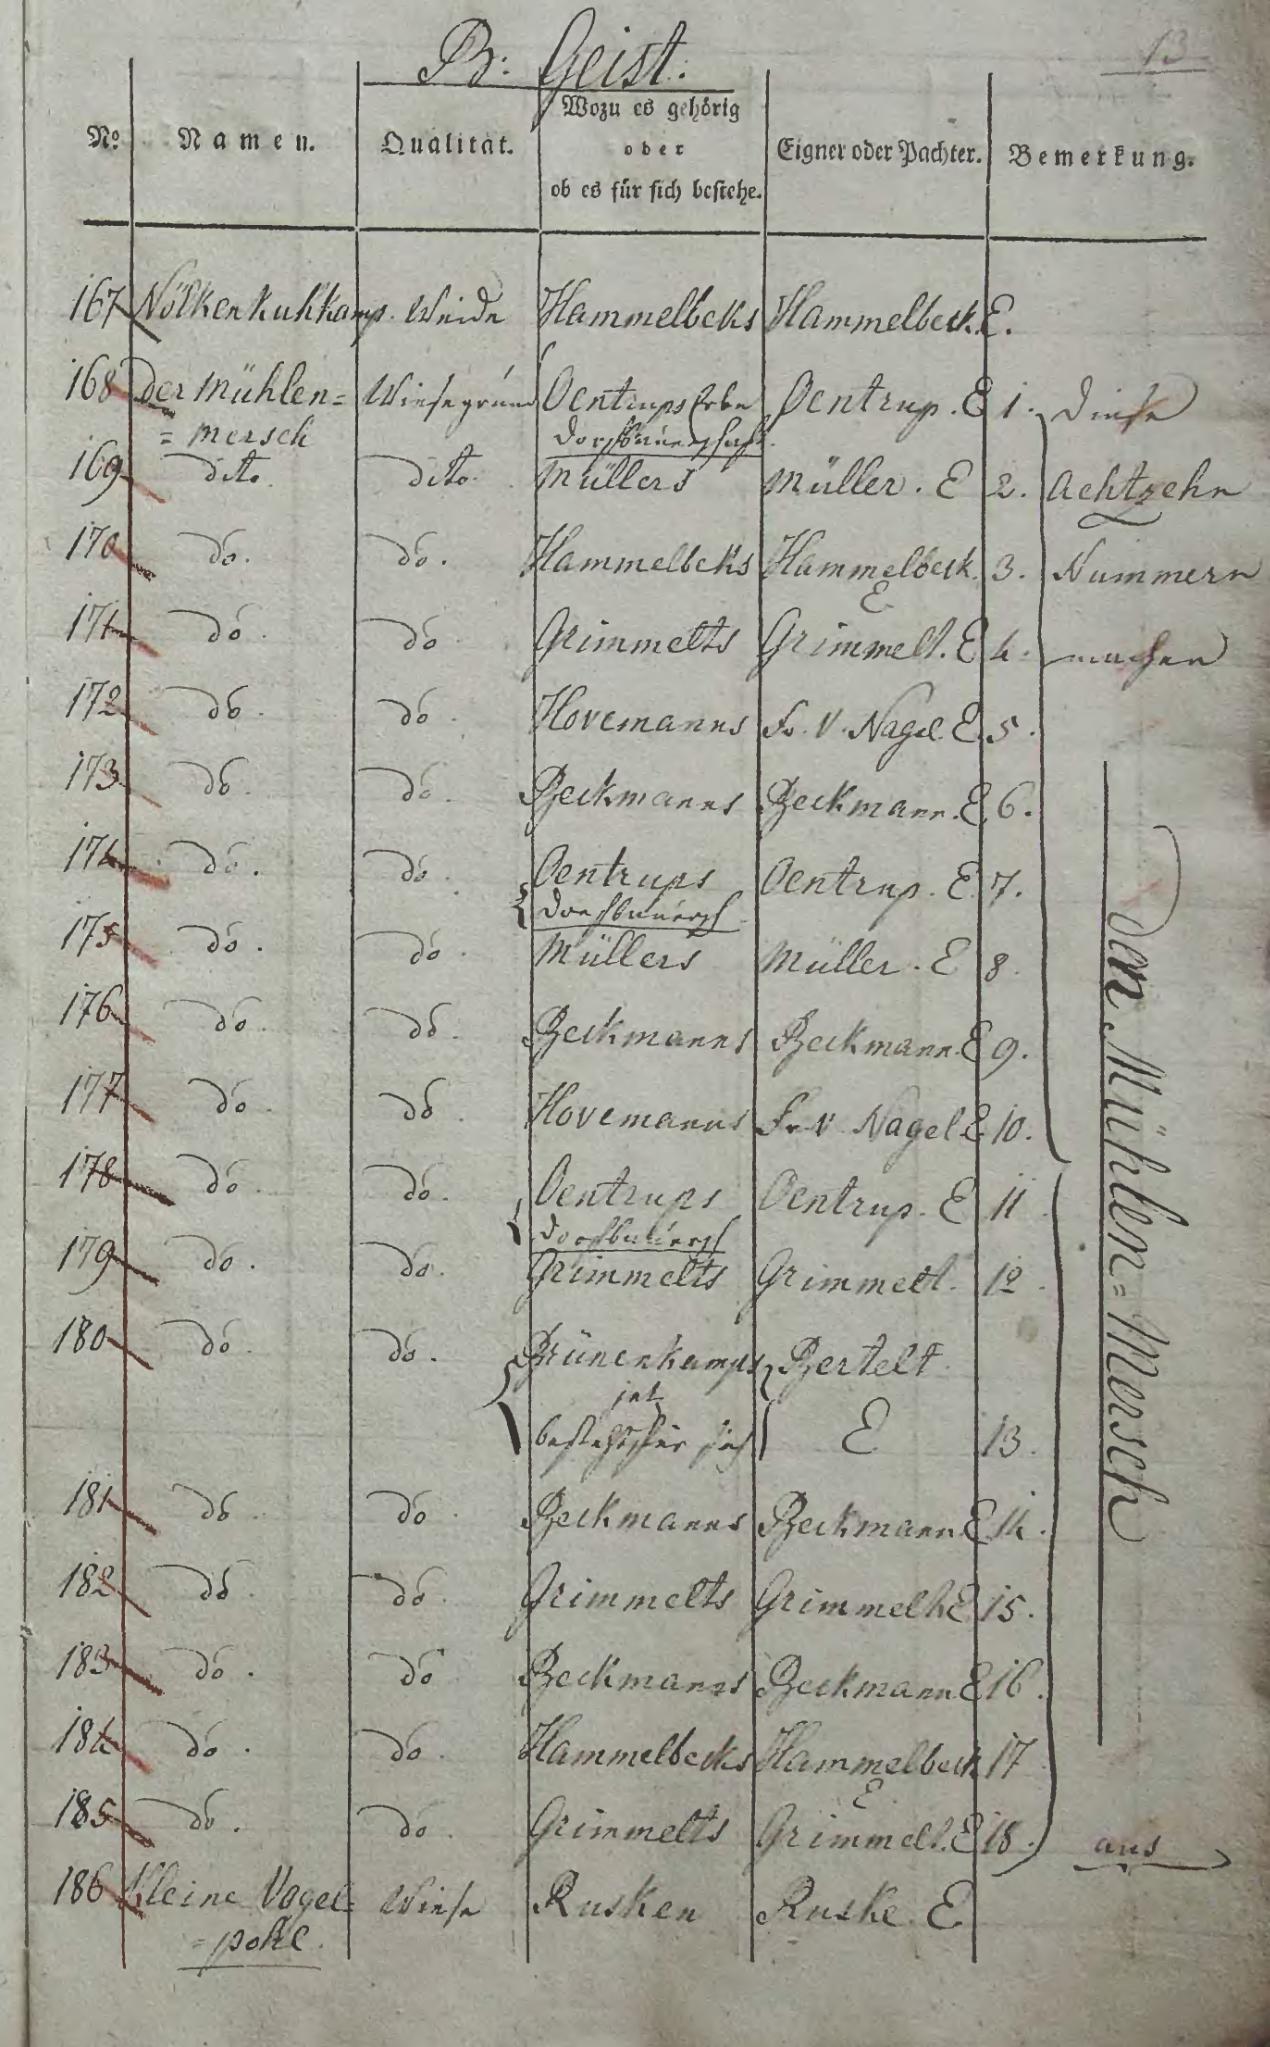 13
B: Geist.
No. Namen. Qualität. Wozu es gehörig oder ob es für sich bestehe. Eigner oder Pachter. Bemerkung.
167 Nölkenkuhkamp. Weide Hammelbeks Hammelbeck. E.
168 der Mühlen= Wiesegrund Oentrups Erbe Oentrup. E 1. diese
= mersch Dorfbauerschaft.
169 dito. dito. Müllers Müller. E 2. Achtzehn
170 do. do. Hammelbeks Hammelbeck. 3. Nummern
E
171 do. do. Grimmelts Grimmelt. E 4. machen
172 do. do. Hovemanns Fr. v. Nagel. E 5.
173 do. do. Beckmanns Beckmann. E 6.
174 do. do. Oentrups Oentrup. E. 7.
Dorfbauersch
175 do. do. Müllers Müller. E 8.
176 do. do. Beckmanns Beckmann. E 9.
177 do. do. Hovemanns Fr. v. Nagel E 10.
178 do. do. Oentrups Oentrup. E 11.
Dorfbauersch
179 do. do. Grimmelts Grimmelt. 12.
180 do. do. Brünenkamps Bertelt
jetz
besteht für sich E 13.
181 do. do. Beckmanns Beckmann. E 14.
182 do. do. Grimmelts Grimmelt. E 15.
183 do. do. Beckmanns Beckmann. E 16.
184 do. do. Hammelbecks Hammelbeck 17
E
185 do. do. Grimmelts Grimmelt. E 18. aus
186 Kleine Vogel= Wiese Rusken Ruske. E
=pohl.
Den Mühlen=Mersch